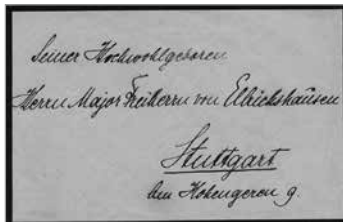 Seiner Hochwohlgeboren
Herrn Major Freiherrn von Ellrichshausen
Stuttgart
Am Hohengeren 9.